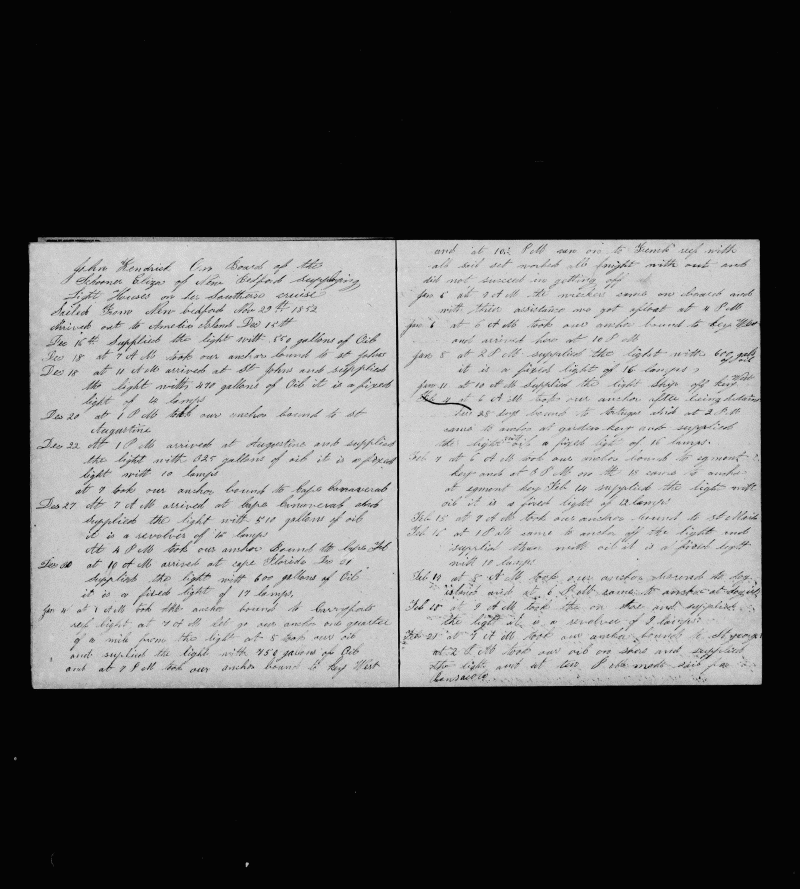 John Kendrick On Board of the
Schooner Eliza of New Bedford Supplying
Light Houses on her Southern cruise
Sailed From New bedford Nov 29th 1852
Arrived out to Amelia Island Dec 15th
Dec 16th Supplied the light with 550 gallons of Oil
Dec 18 at 7 A M took our anchor bound to st Johns
Dec 18 at 10 A M arrived at St Johns and supplied
the light with 470 gallons of Oil it is a fixed
light of 14 lamps
Dec 20 at 1 P M took our anchor bound to st
Augustine
Dec 22 At 1 P M arrived at Augustine and supplied
the light with 325 gallons of oil it is a fixed
light with 10 lamps
at 7 took our anchor bound to Cape Canaveral
Dec 27 At 7 A M arrived at Cape Canaveral and
supplied the light with 510 gallons of oil
it is a revolver of 15 lamps
At 4 P M took our anchor Bound to Cape Fol
Dec 30 at 10 A M arrived at cape Florida Dec 31
Supplied the light with 600 gallons of Oil
it is a fixed light of 17 lamps
Jan 4 at 1 A M took the anchor bound to
reef light at 7 A M let go our anchor one quarter
of a mile from the light at 8 took our oil
and suplied the light with 752 galons of Oil
and at 7 P M took our anchor bound to Key West
and at 10 P M ran on to reef with
all sail set worked all night with out and
did not succeed in getting off
Jan 5 at 9 A M the wrecker came on board and
with their assistance we got afloat at 4 P M
Jan 6 at 6 A M took our anchor bound to key West
and arrived her at 10 P M
Jan 8 at 2 P M supplied the light with 600 gals
of oil
it is a fixed light of 16 lamps
Jan 11 at 10 A M supplied the light Ship off Key West
Feb 4 at 6 A M took our anchor after being detained
25 days bound to Tortugas and at 2 P M
came to anchor at garden key and supplied
the light with oil a fixed light of 16 lamps
Feb 7 at 6 A M took our anchor bound to egmont
key and at 3 P M on the 13 came to anchor
at egmont key Feb 14 supplied the light with
oil it is a fixed light of 12 lamps
Feb 15 at 7 A M took our anchor bound to St Marks
Feb 16 at 1 P M came to anchor off the light and
supplied them with oil it is a fixed light
with 10 lamps
Feb 19 at 5 A M took our anchor bound to dog
island and at 6 P M came to anchor at dog isl
Feb 20 at 9 A M took the on shore and supplied
the light it is a revolver of 9 lamps
Feb 21 at 9 A M took our anchor bound to St george
at 2 P M took our oil on shore and supplied
the light and at P M made sail for
Pensacola